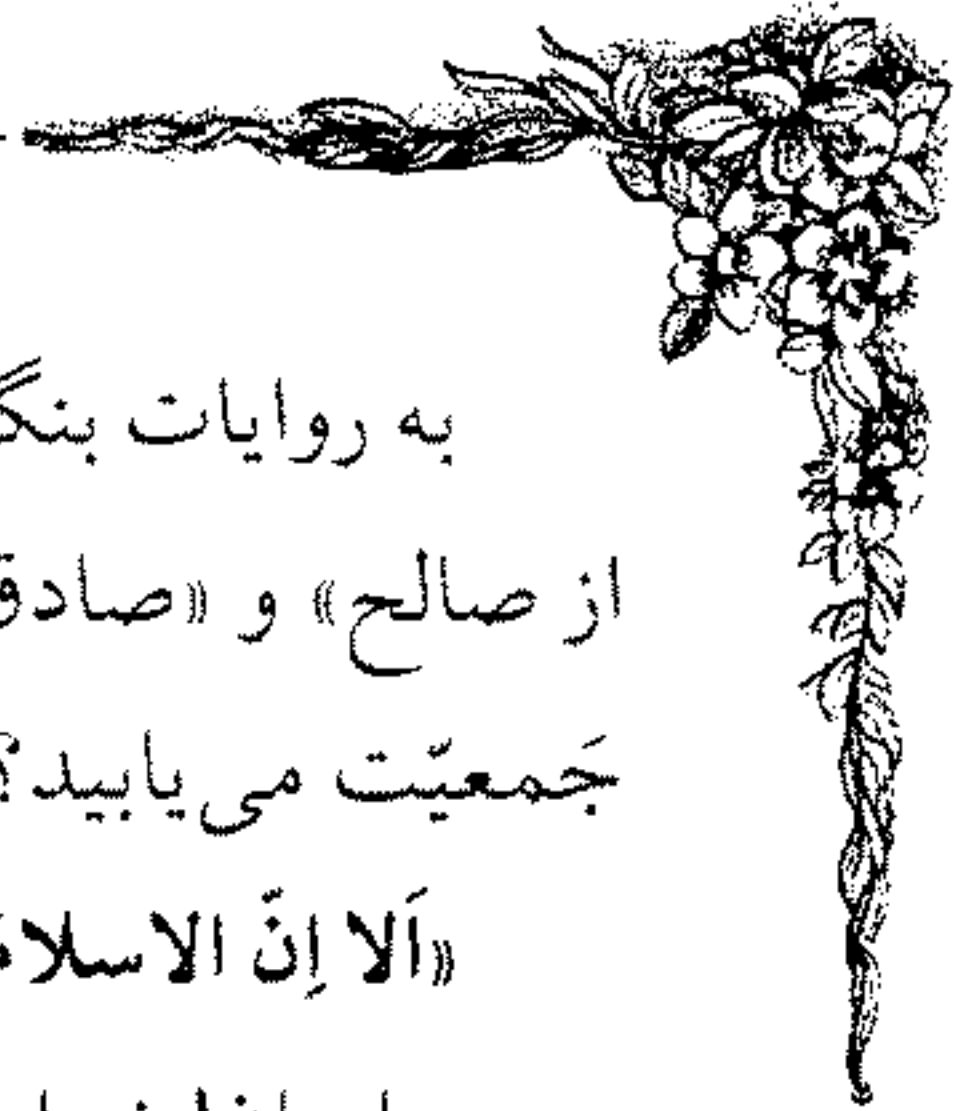 به روایات
از صالح» و «صادق
جَمعیّت می‌یابید؟
«اَلا اِنّ